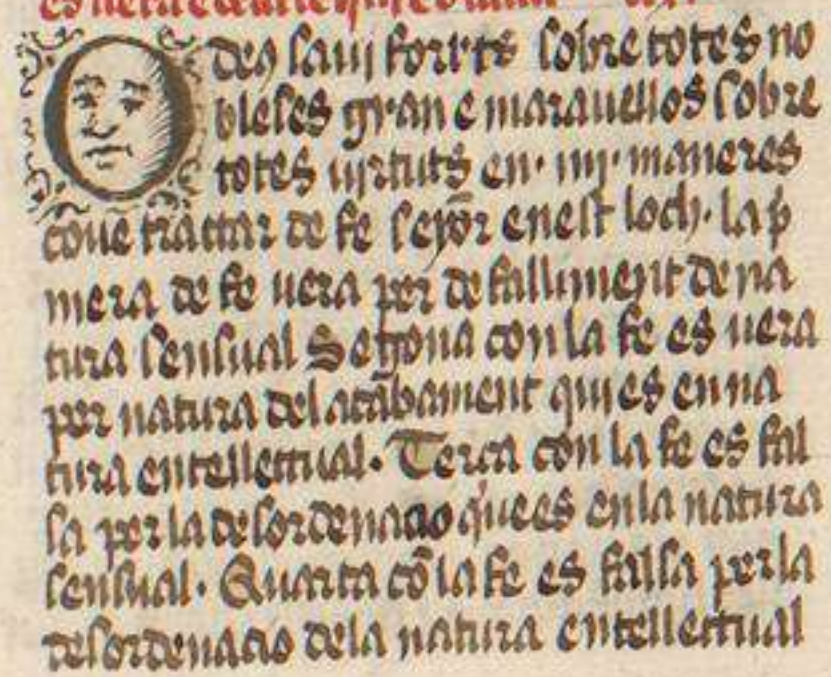 O deus savi fortes sobre totes no
bleses gran e maravellos sobre
totes virtuts en· iiij· maneres
cove tractar de fe seyor en est loch· la p
mera de fe vera per defalliment de na
tura sensual Segona con la fe es vera
per natura del acabament qui es en na
tura entellectual· Terca con la fe es fal
sa per la desordenacio que es en la natura
sensual· Quarta cō la fe es falsa per la
desordenacio de la natura entellectual